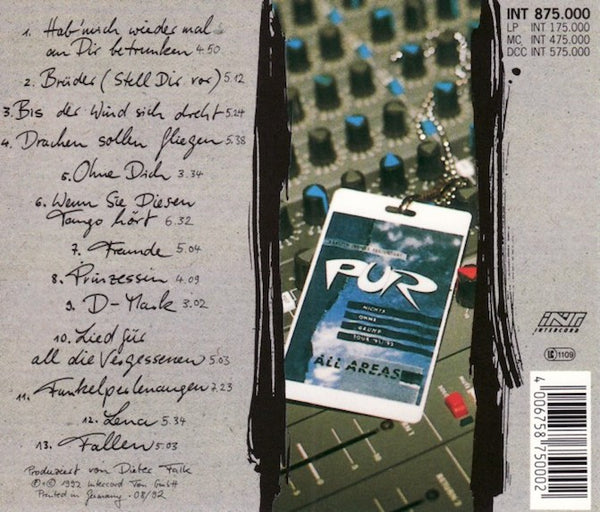 1. Hab' mich wieder mal
an Dir betrunken 4.50
2. Brüder (Stell Dir vor) 5.12
3. Bis der Wind sich dreht 5.24
4. Drachen sollen fliegen 5.38
5. Ohne Dich 3.34
6. Wenn Sie Diesen
Tango hört 6.32
7. Freunde 5.04
8. Prinzessin 4.09
9. D-Mark 3.02
10. Lied für
all die Vergessenen 5.03
11. Funkelperlenaugen 7.23
12. Lena 5.34
13. Fallen 5.03
Produziert von Dieter Falk
℗+© 1992 Intercord Ton GmbH
Printed in Germany · 08/92
PUR
NICHTS
OHNE
GRUND
TOUR '91/92
ALL AREAS
INT 875.000
LP INT 175.000
MC INT 475.000
DCC INT 575.000
INT
INTERCORD
LC 1109
4 006758 750002